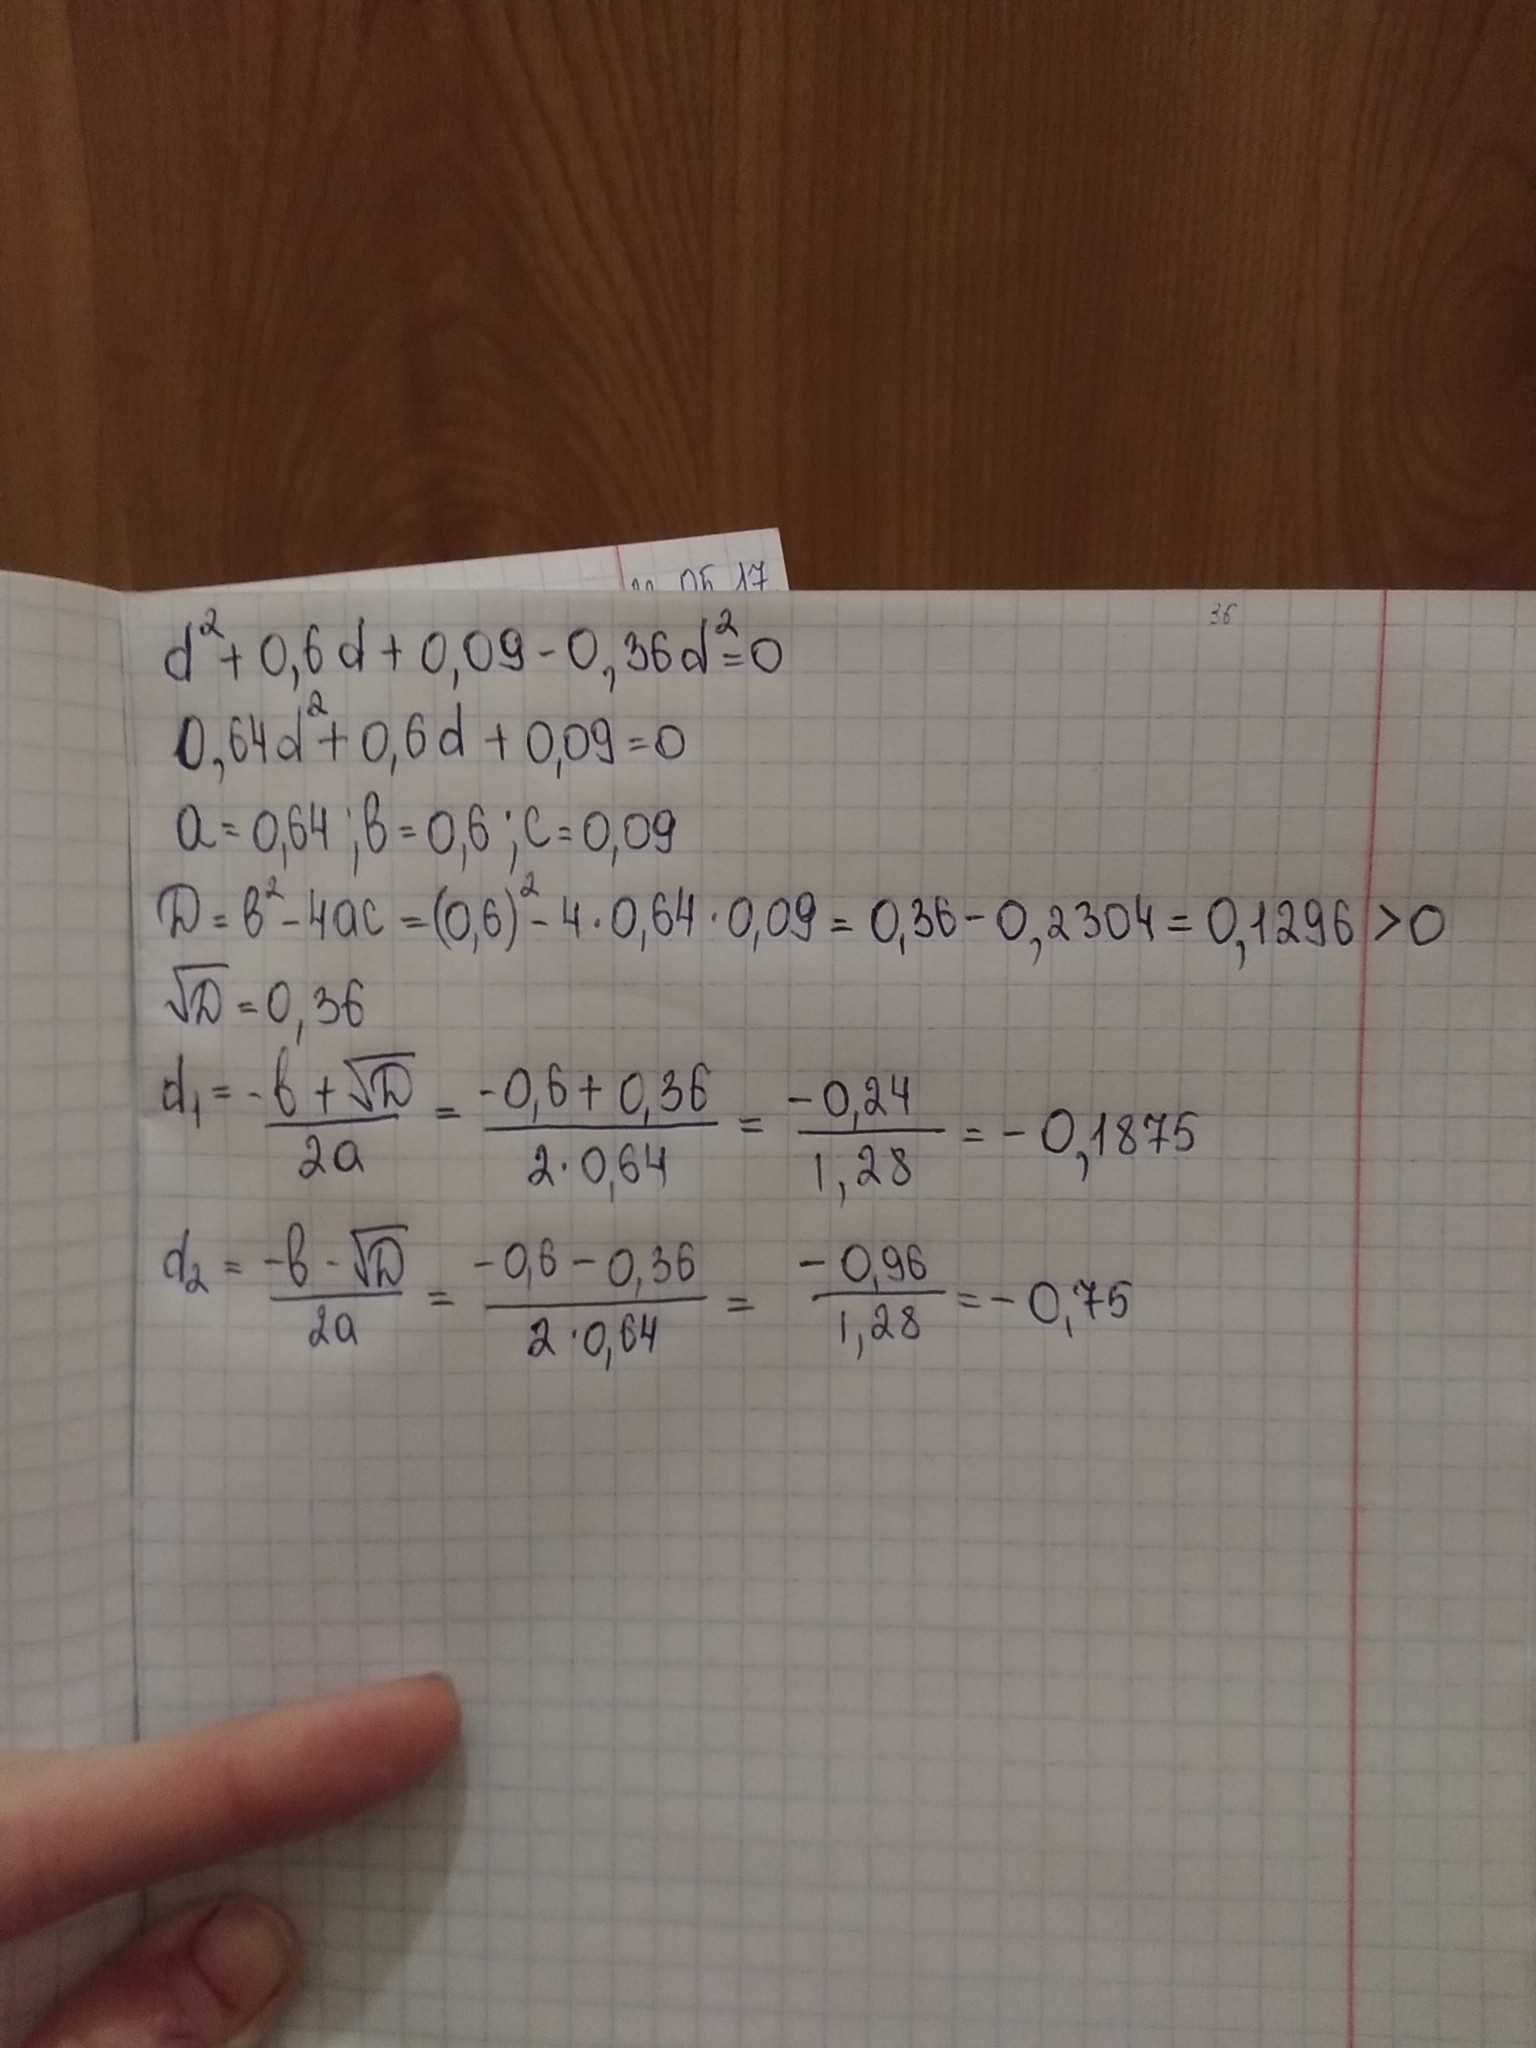 05 17
36
d² + 0,6d + 0,09 - 0,36d² = 0
0,64d² + 0,6d + 0,09 = 0
a = 0,64 ; в = 0,6 ; c = 0,09
D = в² - 4ac = (0,6)² - 4 · 0,64 · 0,09 = 0,36 - 0,2304 = 0,1296 > 0
√D = 0,36
d₁ = (-в + √D)/(2a) = (-0,6 + 0,36)/(2 · 0,64) = (-0,24)/(1,28) = -0,1875
d₂ = (-в - √D)/(2a) = (-0,6 - 0,36)/(2 · 0,64) = (-0,96)/(1,28) = -0,75